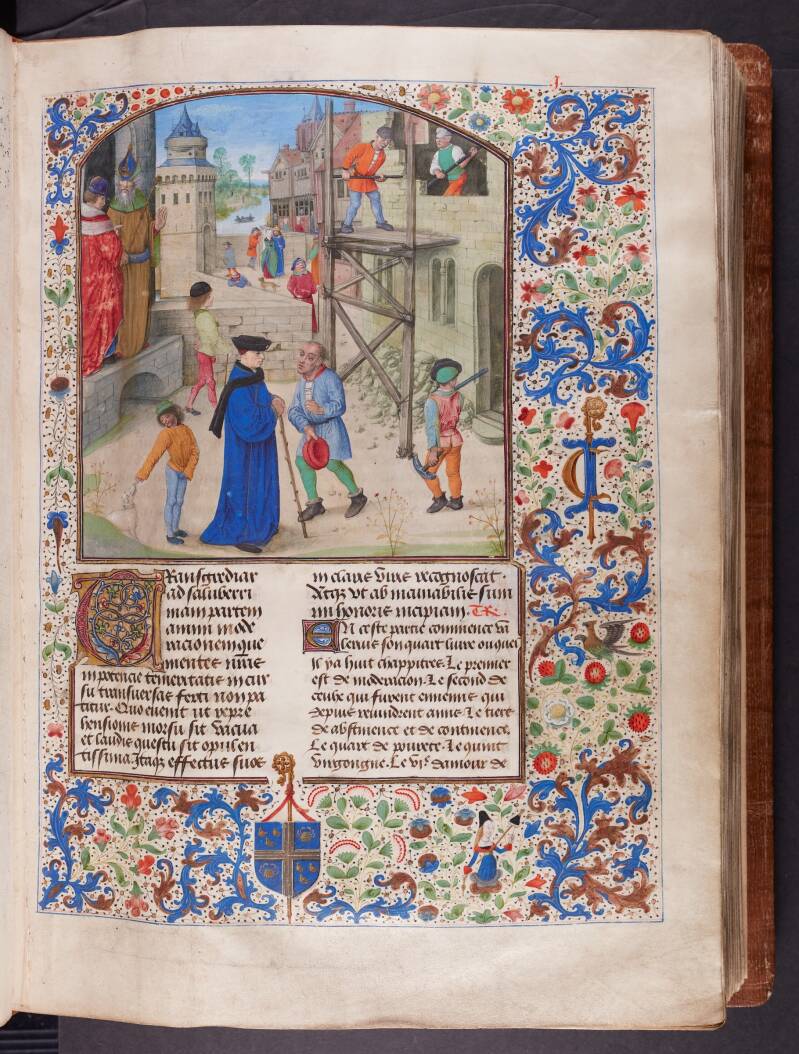 Transgrediar
ad saluberri
mam partem
animi mode
racionem que
mentes nr̄as
impotencie temeritatis incur
su transuersas ferri non pa
titur. Quo euenit ut repre
hensionis morsu sit vacua
et laudis questu sit opulen
tissima. Itaq; effectus suos
in claris viris recognoscat.
Atq; vt ab incunabilis sum
mi honoris incipiam. TR.
En ceste partie commence va
lerius son quart liure ouquel
il ya huit chappitres. Le premier
est de moderacion. Le second de
ceulx qui furent ennemis qui
depuis reuindrent amis. Le tiers
de abstinence et de continence.
Le quart de pourete. Le quint
vergongne. Le vi.e damour de